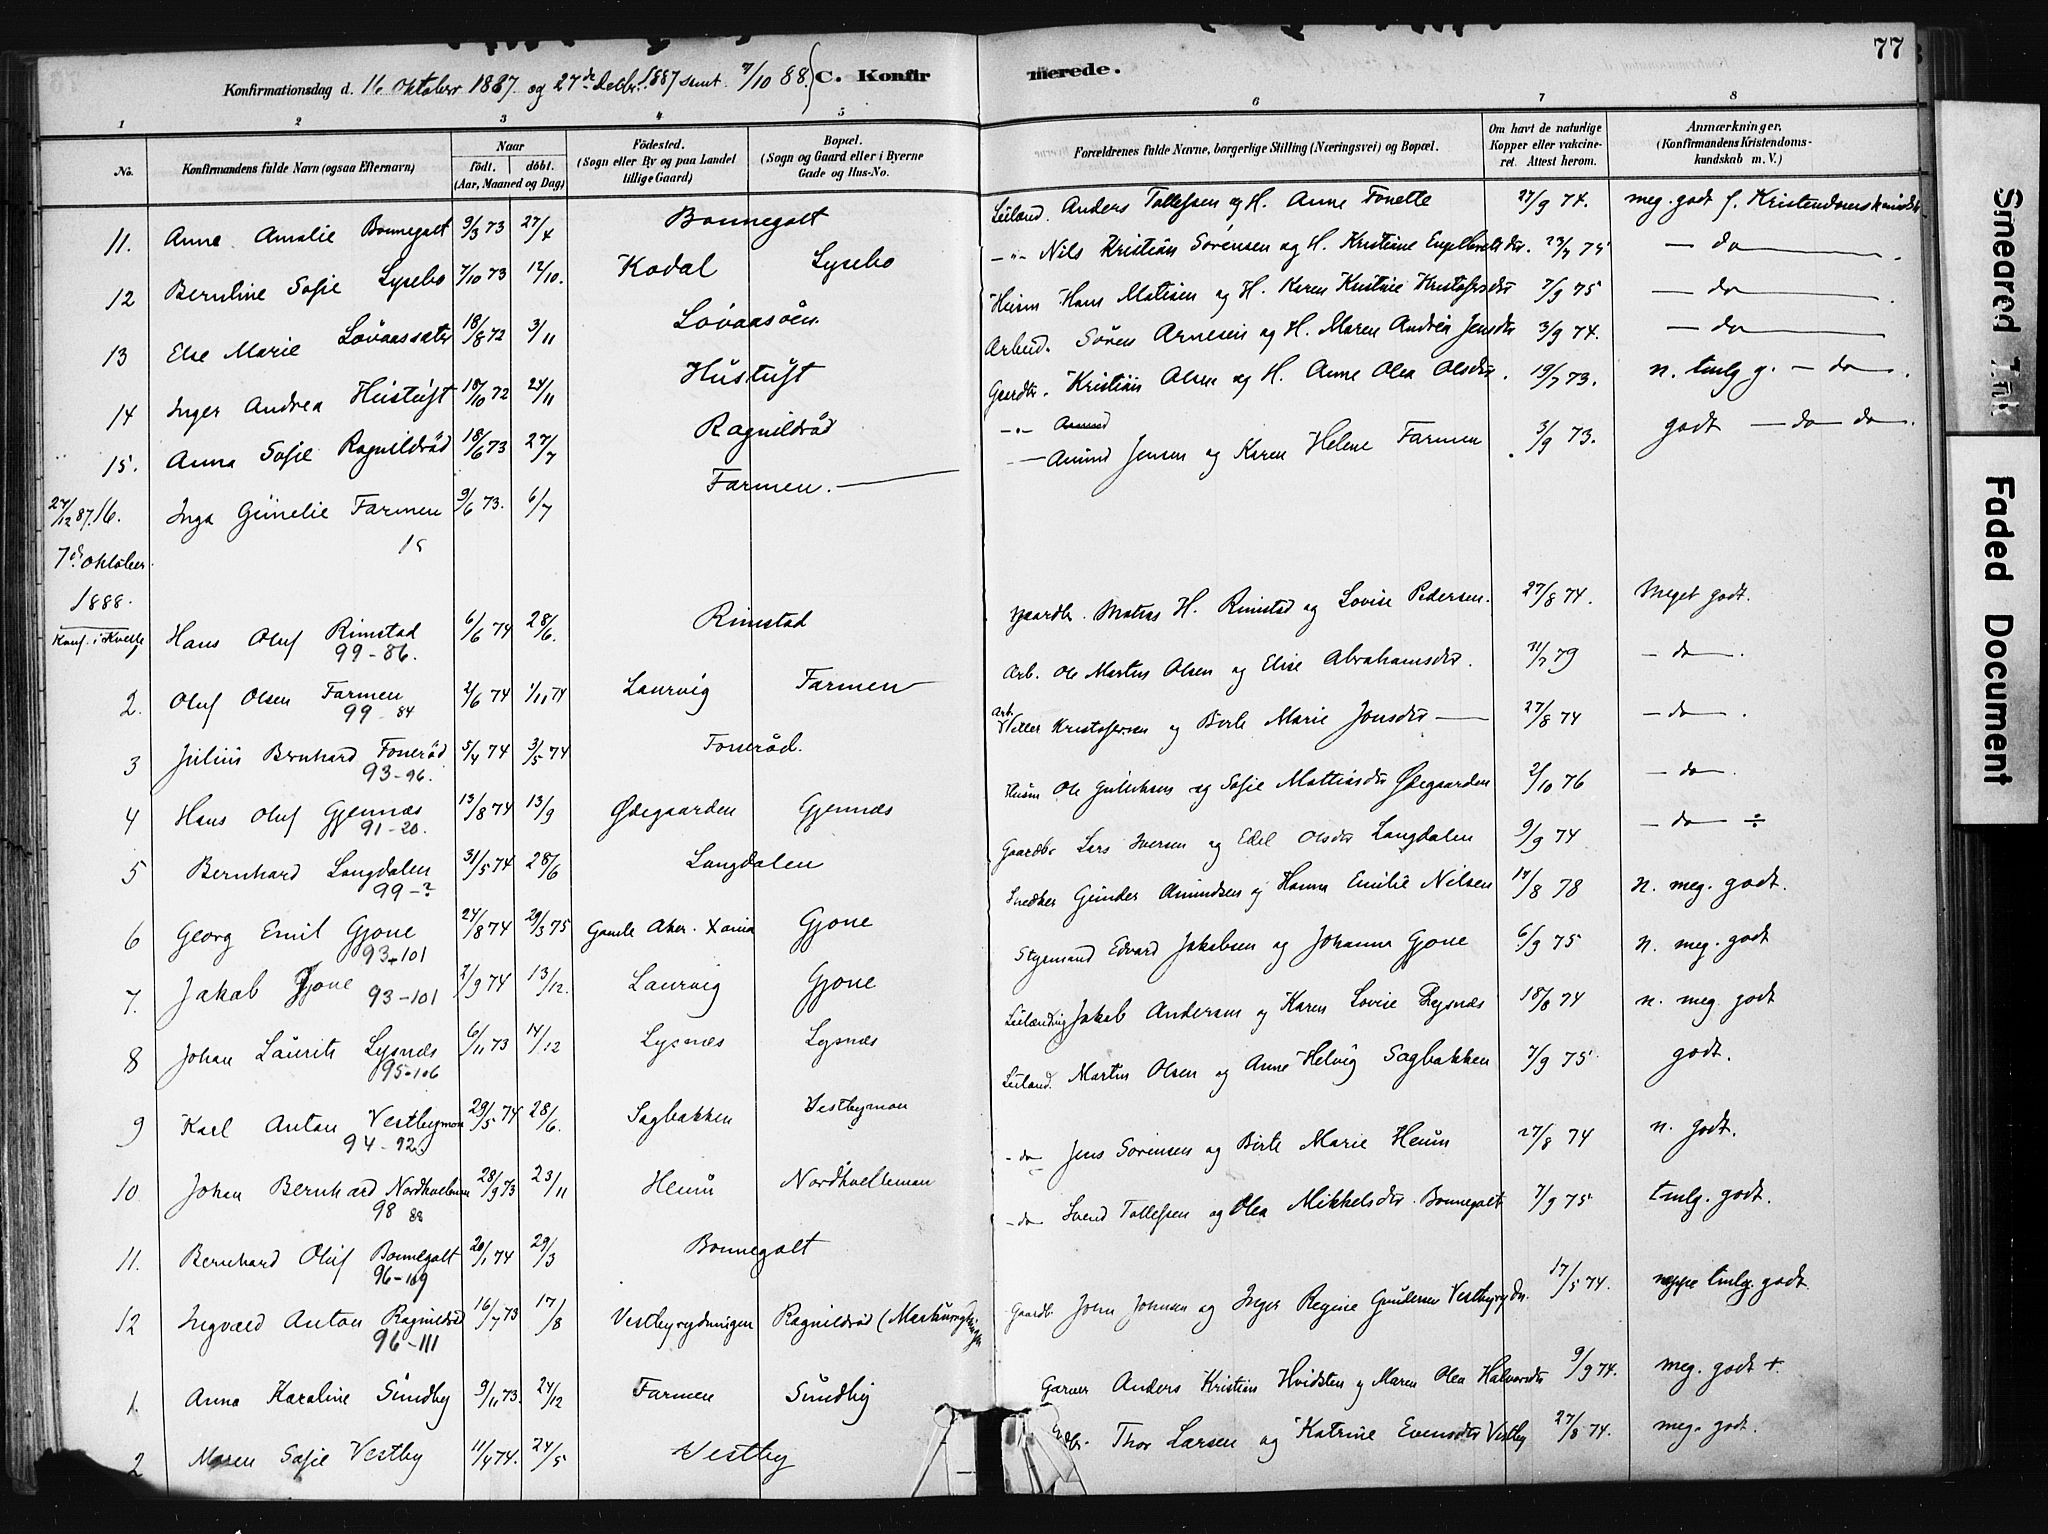 77
Konfirmationsdag d. 16 Oktober 1887. og 27de Decbr. 1887 samt 7/10 88. C. Konfirmerede.
1 2 3 4 5 6 7 8
No. Konfirmandens fulde Navn (ogsaa Efternavn) Naar födt. döbt. (Aar, Maaned og Dag) Födested. (Sogn eller By og paa Landet tillige Gaard.) Bopæl. (Sogn og Gaard eller i Byerne Gade og Hus-No. Forældrenes fulde Navne, borgerlige Stilling (Næringsvei) og Bopæl. Om havt de naturlige Kopper eller vakcineret. Attest herom. Anmærkninger. (Konfirmandens Kristendomskundskab m. V.)
11. Anne Amalie Bonnegolt 9/3 73 27/4 Bonnegolt Leiland. Anders Tollefsen og H. Anne Fonette 27/9 74. meg. godt f. Kristendomskundsk
12 Bernline Sofie Lysebo 7/10 73 12/10. Kodal Lysebo -"- Nils Kristian Sörensen og H. Kristine Engelbretsdtr. 23/7 75 - do -
13 Else Marie Lövaassæter 18/8 72 3/11 Lövaasöen. Husm Hans Matisen og H. Karen Kristine Kristofersdtr 7/9 75 - do -
14 Inger Andrea Hustuft 18/10 72 24/11 Hustuft Arbeid. Sören Arnesen og H. Maren Andrea Jensdtr 3/9 74. - do -
15. Anna Sofie Ragnildröd 18/6 73 27/7 Ragnildröd Gaardbr. Kristian Olsen og H. Anne Olea Olsdtr. 19/7 73. n. tmlg g. - do -
27/12 87. 16. Inga Gunelie Farmen 9/6 73. 6/7 Farmen. - " - Amund Jensen og Karen Helene Farmen 3/9 73. godt - do - do -
15
7de Oktober
1888.
Konf. i Kvelle
Hans Oluf Rimstad 6/6 74 28/6. Rimstad Gaardbr. Matias H. Rimstad og Lovise Pedersen. 27/8 74. Meget godt.
99-86.
2. Oluf Olsen Farmen 2/6 74 1/11 74 Laurvig Farmen Arb. Ole Martin Olsen og Elise Abrahamsdtr. 11/7 79 - do -.
99-84
3 Julius Bernhard Foneröd 5/4 74 3/5 74 Foneröd. Arb. Kristofersen og Berte Marie Jonsdtr - 27/8 74 - do -.
93-96.
4 Hans Oluf Gjennæs 13/8 74 13/9 Ødegaarden Gjennæs Husm Ole Gulliksen og Sofie Mattiasdtr Ødegaarden 2/10 76 - do -.
91-20.
5 Bernhard Langdalen 31/5 74 28/6 Langdalen Gaardbr Lars Iversen og Edel Olsdtr Langdalen 9/9 74 - do - ÷
99-?
6 Georg Emil Gjone 24/8 74 29/3 75 Gamle Aker. Xania Gjone Snedker Gunder Amundsen og Hanna Emilie Nilsen 17/8 78 n. meg. godt.
93-101
7. Jakob Gjone 2/9 74 13/12. Laurvig Gjone Styrmand Edvard Jakobsen og Johanna Gjone 6/9 75 n. meg. godt
93-101
8 Johan Laurits Lysnæs 6/11 73 14/12 Lysnæs Lysnæs Leilænding Jakob Andersen og Karen Lovise Lysnæs 18/8 74 n. meg. godt
95-106
9 Karl Anton Vestbymoen 29/5 74 28/6. Sagbakken Vestbymoen Leiland. Martin Olsen og Anne Helvig Sagbakken 7/9 75 godt.
94-92
10 Johan Bernhard Nordkvellemoen 28/9 73 23/11 Heum Nordkvellemoen - do Jens Sörensen og Birte Marie Heum 27/8 74 n. godt.
98 88
11. Bernhard Oluf Bonnegolt 20/1 74 29/3 Bonnegolt - do Svend Tollefsen og Olea Mikkelsdtr. Bonnegolt 7/9 75 tmlg. godt.
96-109
12 Ingvald Anton Ragnildröd 16/7 73 17/8 Vestbyrydningen Ragnildröd Gaardb. John Johnsen og Inger Regine Gundersen Vestbyrydn. 17/5 74. neppe tmlg. godt
96-111
1. Anna Karoline Sundby 9/11 73. 24/12 Farmen Sundby Garver Anders Kristian Hvidsten og Maren Olea Halvorsdtr 9/9 74. meg. godt +
2 Maren Sofie Vestby 11/4 74. 24/5 Vestby Thor Larsen og Katrine Evensdtr Vestby 27/8 74. meg. godt.
Smeared Ink
Faded Document